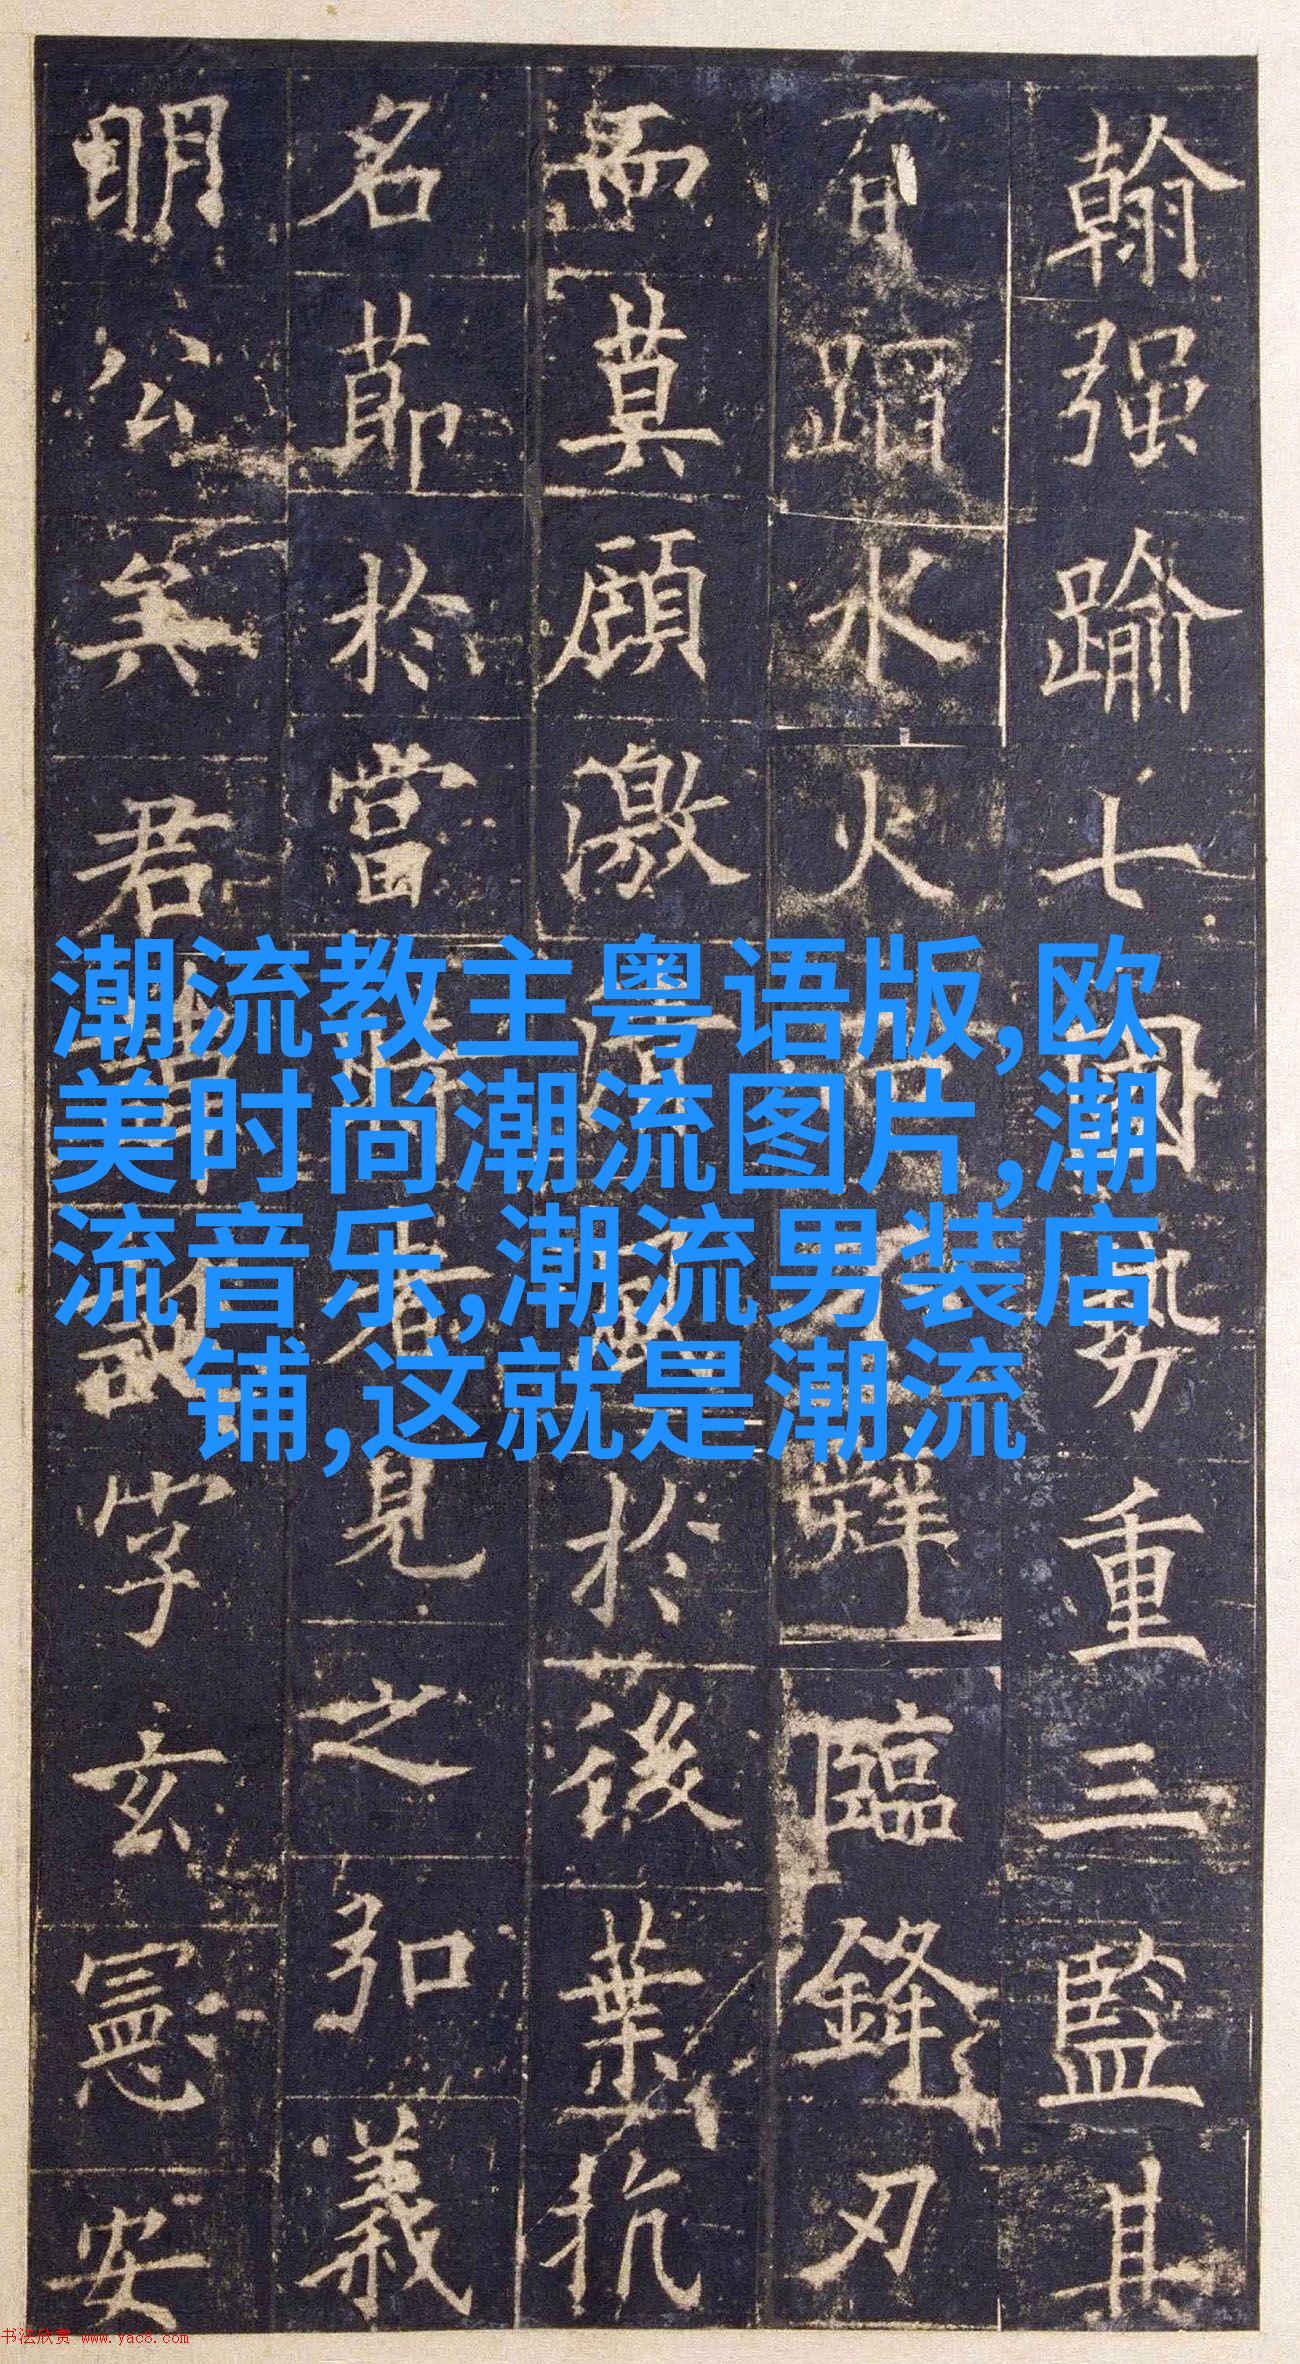 翰强踰七國勢重三監其
有蹈水火而不辭臨鋒刃
而莫顧激清風於後葉抗
名節於當時者見之弘義
明公矣君諱誕字玄憲安
潮流教主粤语版,欧
美时尚潮流图片,潮
流音乐,潮流男装店
铺,这就是潮流
书法欣赏 www.yac8.com